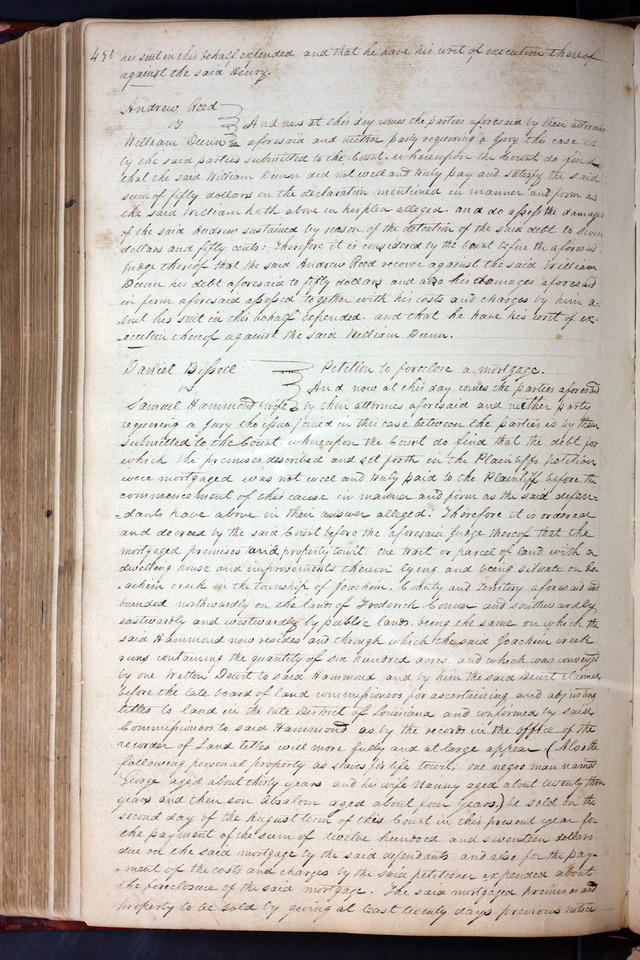 450 his suit in this behalf extended and that he have his writ of execution thereof
against the said Henry.
Andrew Reed
vs And now at this day comes the parties aforesaid by their attornies
William Dunn aforesaid and neither party requiring a Jury this case is
by the said parties submitted to the Court. whereupon the Court do find
that the said William Dunn did not well and truly pay and satisfy the said
sum of fifty dollars in the declaration mentioned in manner and form as
the said William hath above in his plea alleged. and do assess the damages
of the said Andrew sustained by reason of the detention of the said debt to Seven
dollars and fifty cents: Therefore it is considered by the Court before the aforesaid
Judge thereof that the said Andrew Reed recover against the said William
Dunn his debt aforesaid to fifty dollars and also his damages aforesaid
in form aforesaid assessed together with his costs and charges by him a-
bout his suit in this behalf expended. and that he have his writ of ex-
ecution thereof against the said William Dunn.
Daniel Bissell Petition to foreclose a mortgage.
vs And now at this day comes the parties aforesaid
Samuel Hammond & wife by their attornies aforesaid and neither party
requiring a Jury the issue joined in this case between the parties is by them
submitted to the Court whereupon the Court do find that the debt for
which the premises described and set forth in the Plaintiffs petition
were mortgaged was not well and truly paid to the Plaintiff before the
commencement of this cause in manner and form as the said defen-
dants have above in their answer alleged. Therefore it is ordered
and decreed by the said Court before the aforesaid Judge thereof that the
mortgaged premises and property towit, one tract or parcel of land with a
dwelling house and improvements thereon lying and being situate on Jo-
achim creek in the township of Joachim, County and Territory aforesaid and
bounded northwardly on the lands of Frederick Conner and southwardly,
eastwardly and westwardly by public lands, being the same on which the
said Hammond now resides and through which the said Joachim creek
runs containing the quantity of six hundred acres, and which was conveyed
by one Walton Dewit to said Hammond and by him the said Dewit claimed
before the late board of land commissioners for ascertaining and adjusting
titles to land in the late District of Louisiana and confirmed by said
Commissioners to said Hammond as by the records in the office of the
recorder of Land titles will more fully and at large appear (Also the
following personal property as slaves for life towit, one negro man named
George aged about thirty years and his wife Nanny aged about twenty three
years and their son Absalom aged about four years,) be sold on the
second day of the August term of this Court in this present year for
the payment of the sum of twelve hundred and seventeen dollars
due on the said mortgage by the said defendants and also for the pay-
ment of the costs and charges by the said petitioner expended about
the foreclosure of the said mortgage. The said mortgaged premises and
property to be sold by giving at least twenty days previous notice